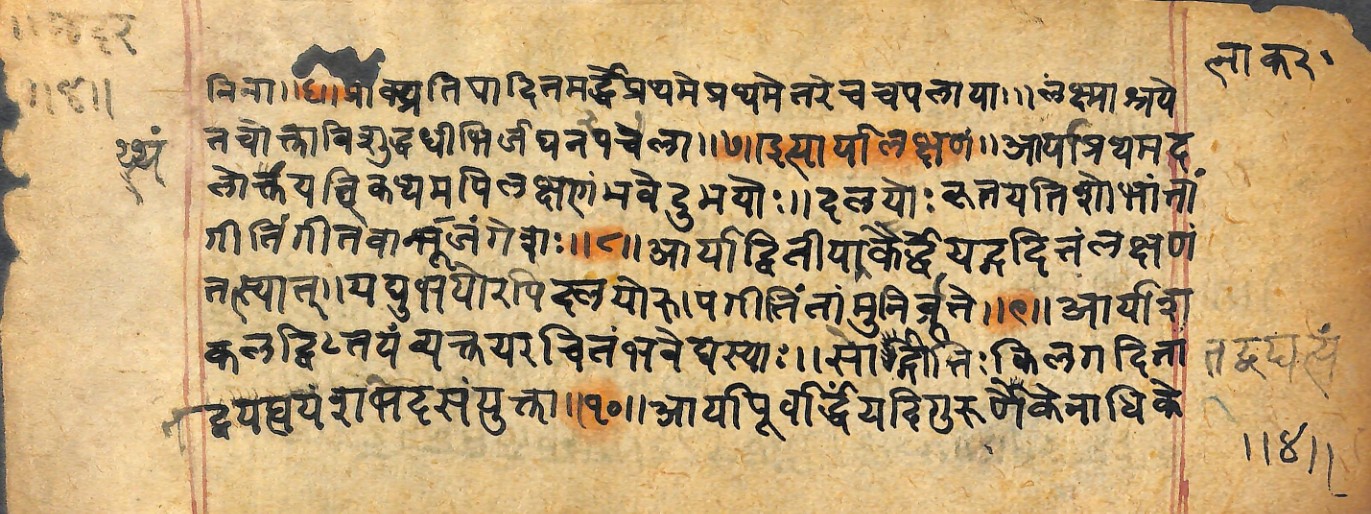 लाकर
॥४॥
प्राक्प्रतिपादितमर्द्धेप्रथमेप्रथमेतरेचचपलाया॥।लंक्ष्माश्रये
तचोक्ताविशुद्धधीभिर्जघनपचला॥७॥इत्यार्यालक्षणं॥आर्याप्रथमद
लोक्तंयदिकथमपिलक्षणंभवेदुभयोः॥दलयोःकृतयतिशोभांतां
गीतिंगीतवान्भूजंगेशः॥८॥आर्याद्वितीयार्कैर्द्धेयद्गदितंलक्षणं
तत्स्यात्॥यद्युभयोरपिदलयोरुपगीतिंतांमुनिर्ब्रूते॥९॥आर्याश
कलद्वितयंव्यत्ययरचितंभवेद्यस्याः॥सोद्गीतिःकिलगदिता
शभेदसंयुक्ता॥१०॥आर्यापूर्वार्द्धंयदिगुरुणैकेनाधिके
॥४॥